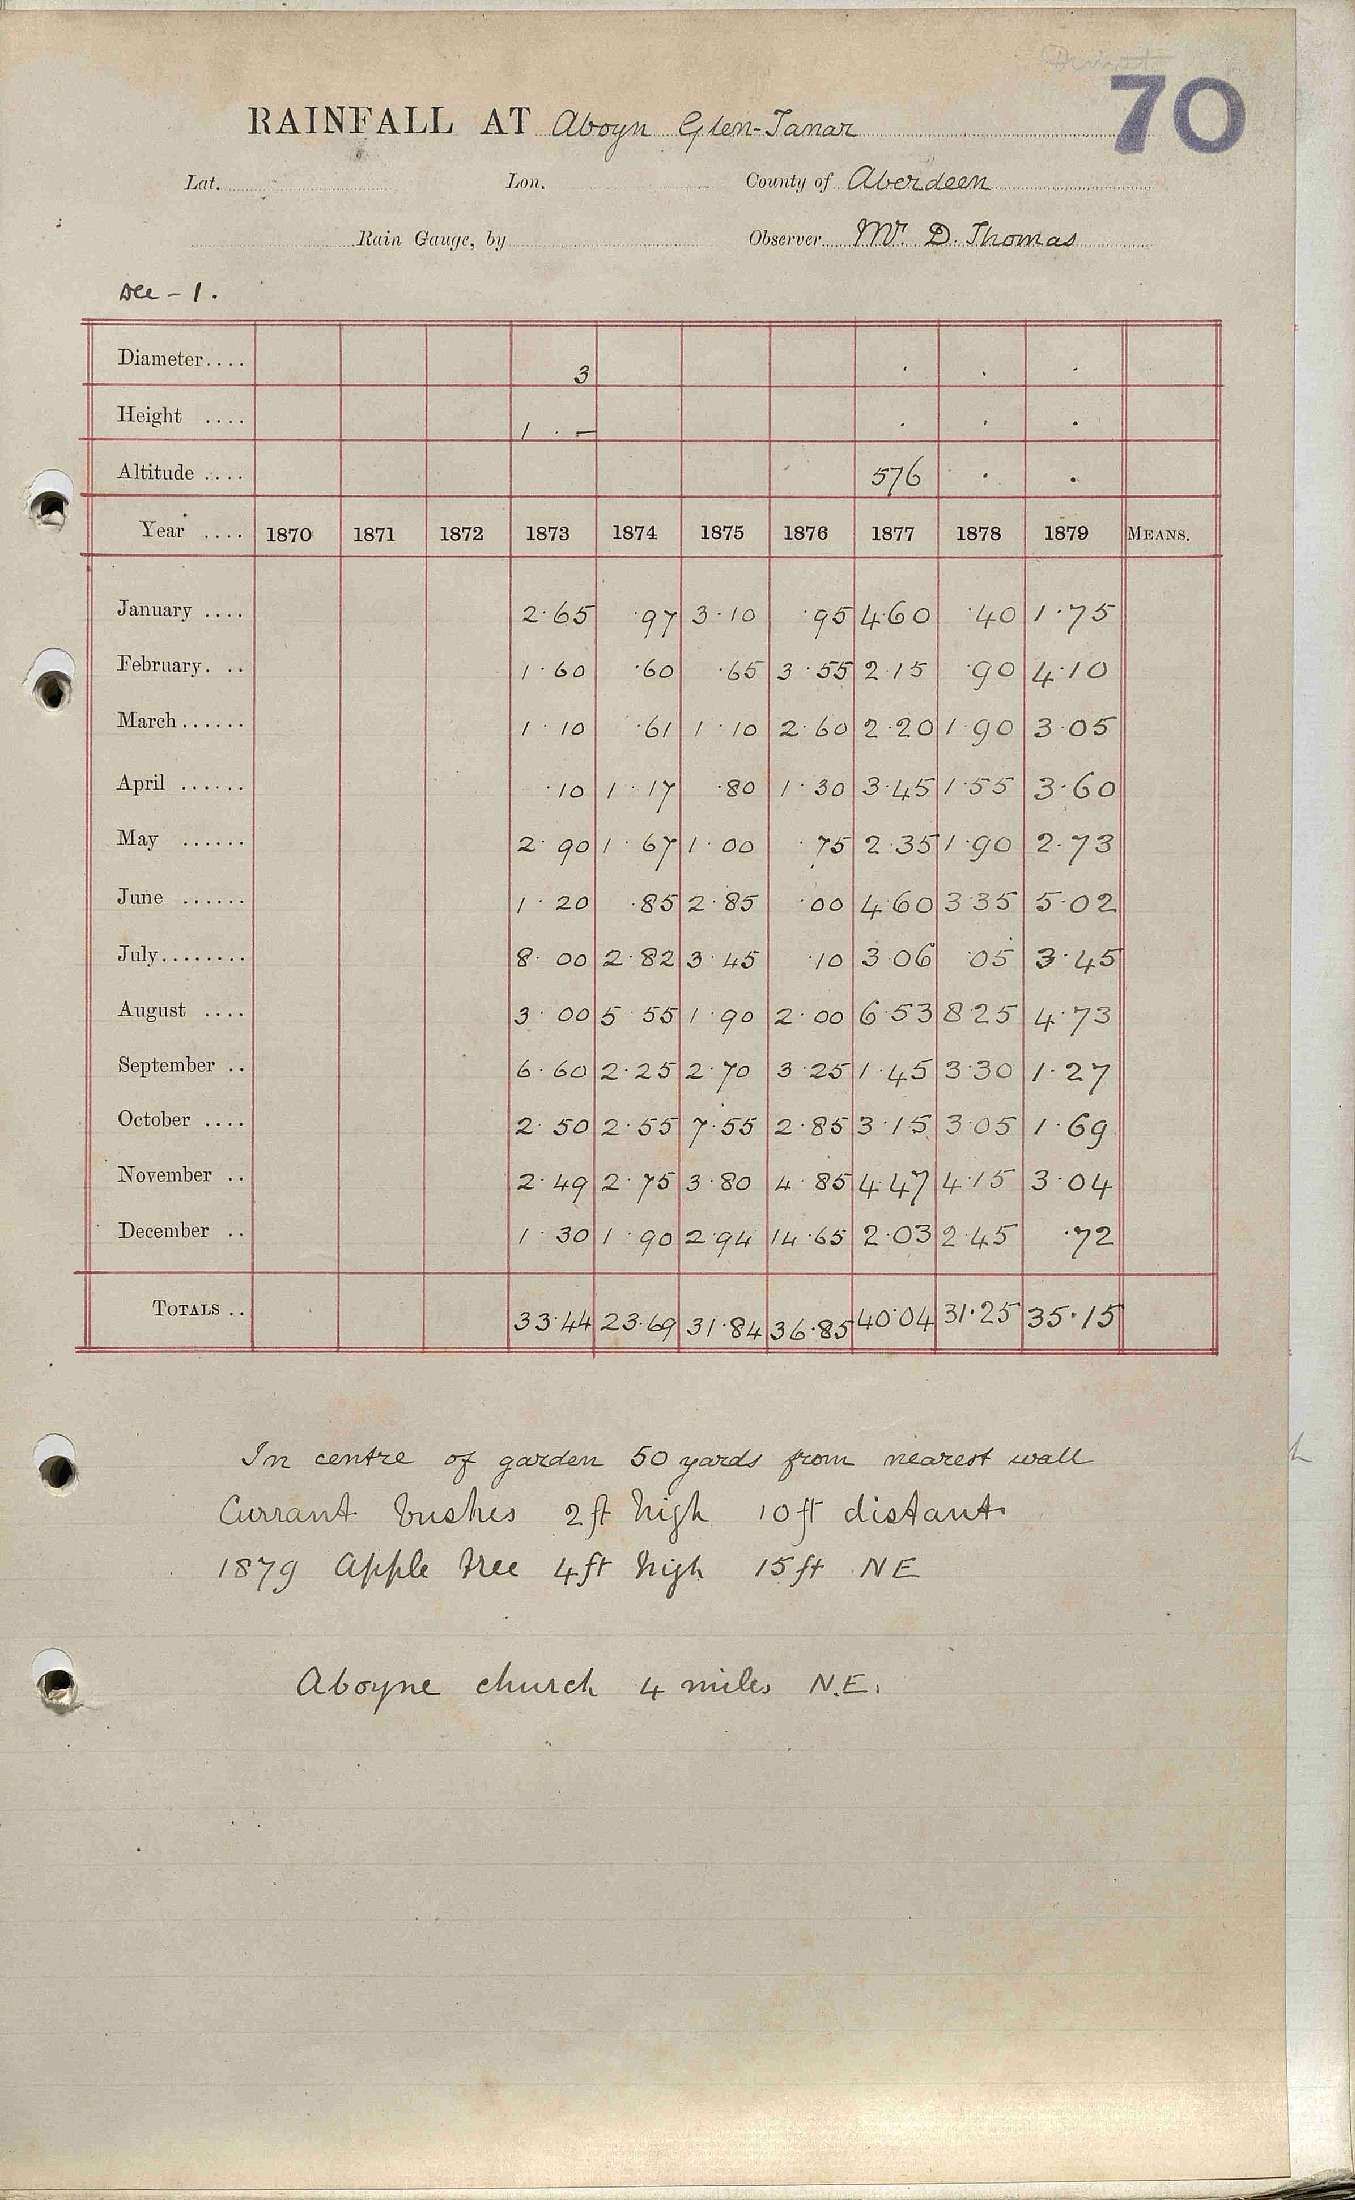 70
RAINFALL AT Aboyn Glen-Tanar
Lat. Lon. County of Aberdeen
Rain Gauge, by Observer Mr. D. Thomas
Dec - 1.
Diameter.... 3 . . .
Height .... 1 . - . . .
Altitude .... 576 . .
Year .... 1870 1871 1872 1873 1874 1875 1876 1877 1878 1879 MEANS.
January .... 2.65 .97 3.10 .95 4.60 .40 1.75
February. .. 1.60 .60 .65 3.55 2.15 .90 4.10
March...... 1.10 .61 1.10 2.60 2.20 1.90 3.05
April ...... .10 1.17 .80 1.30 3.45 1.55 3.60
May ...... 2.90 1.67 1.00 .75 2.35 1.90 2.73
June ...... 1.20 .85 2.85 .00 4.60 3.35 5.02
July........ 8.00 2.82 3.45 .10 3.06 .05 3.45
August .... 3.00 5.55 1.90 2.00 6.53 8.25 4.73
September .. 6.60 2.25 2.70 3.25 1.45 3.30 1.27
October .... 2.50 2.55 7.55 2.85 3.15 3.05 1.69
November .. 2.49 2.75 3.80 4.85 4.47 4.15 3.04
December .. 1.30 1.90 2.94 14.65 2.03 2.45 .72
TOTALS .. 33.44 23.69 31.84 36.85 40.04 31.25 35.15
In centre of garden 50 yards from nearest wall
Currant bushes 2 ft high 10 ft distant.
1879 Apple tree 4 ft high 15 ft NE
Aboyne church 4 miles N.E.